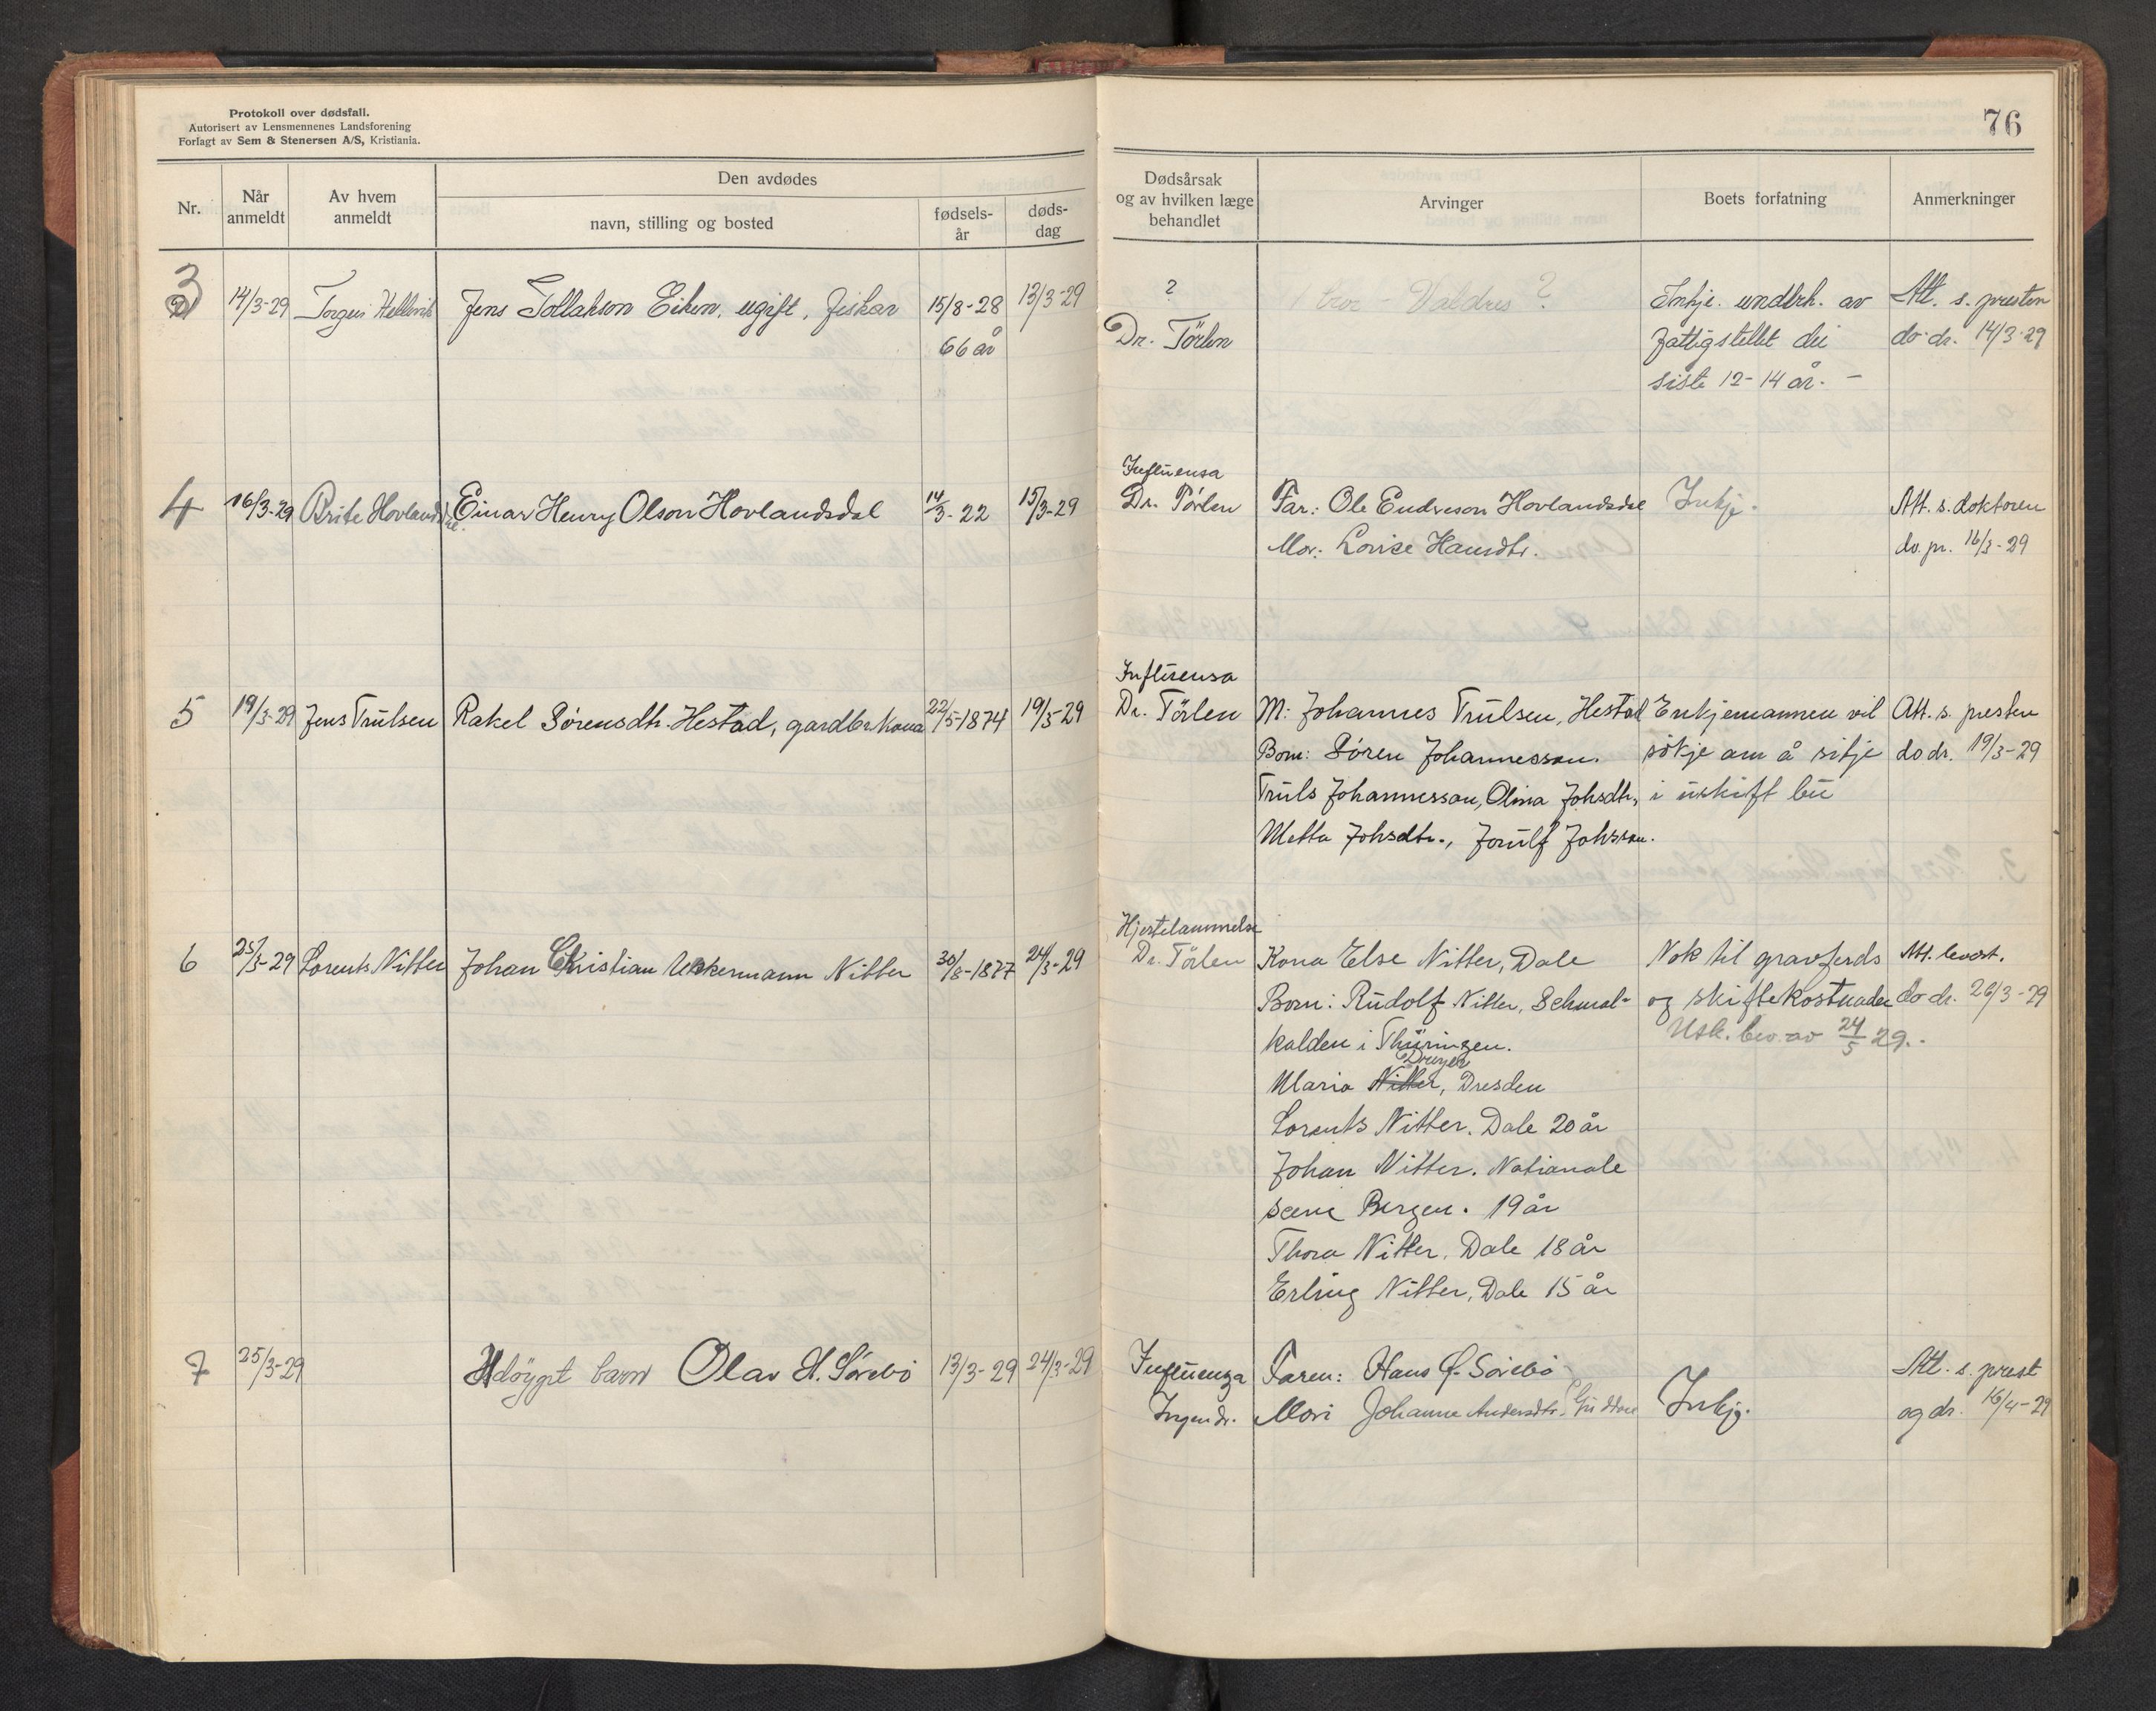 Protokoll over dødsfall.
Autorisert av Lensmennenes Landsforening
Forlagt av Sem & Stenersen A/S, Kristiania.
76
Nr.
Når anmeldt
Av hvem anmeldt
Den avdødes
navn, stilling og bosted
fødsels-år
døds-dag
Dødsårsak og av hvilken læge behandlet
Arvinger
Boets forfatning
Anmerkninger
3 14/3-29 Torgeir Hellevik Jens Tollakson Eiken, ugift, fiskar 15/8-28 13/3-29 ? Valdres? Inkje. undерh. av Att. s. presten
66 år Dr. Tørlen fattigstellet dei do dr. 14/3-29
siste 12-14 år. -
Influensa
4 16/3-29 Brite Hovlandsdal. Einar Henry Olson Hovlandsdal 14/3-22 15/3-29 Dr. Tørlen Far: Ole Endreson Hovlandsdal Inkje. Att. s. doktoren
Mor: Lovise Hansdtr. do. pr. 16/3-29
Influensa
5 19/3-29 Jens Trulsen Rakel Sørensdtr. Hestad, gardbr.kona 22/5-1874 19/3-29 Dr. Tørlen M: Johannes Trulsen, Hestad Enkjemannen vil Att. s. presten
Born: Søren Johannesson. søkje om å sitje do dr. 19/3-29
Truls Johannesson, Olina Johsdtr, i uskift bu
Metta Johsdtr., Jorulf Johsson.
Hjertelammelse
6 25/3-29 Lorents Nitter Johan Christian Uckermann Nitter 30/8-1877 24/3-29 Dr. Tørlen Kona Else Nitter, Dale Nok til gravferds Att. levert.
Born: Rudolf Nitter, Schmal- og skiftekostnader do dr. 26/3-29
kalden i Thüringen. Usk. bev. av 24/5 29.
Dreyer
Maria Nitter, Dresden
Lorents Nitter. Dale 20 år
Johan Nitter. Nationale
scene Bergen. 19 år
Thora Nitter. Dale 18 år
Erling Nitter, Dale 15 år
7 25/3-29 Udøypt barn Olav H. Sørebø 13/3-29 24/3-29 Influenza Faren: Hans Sørebø Att. s. prest
Ingen dr. Mori Johanne Andersdtr. Inkje. og dr. 16/4-29